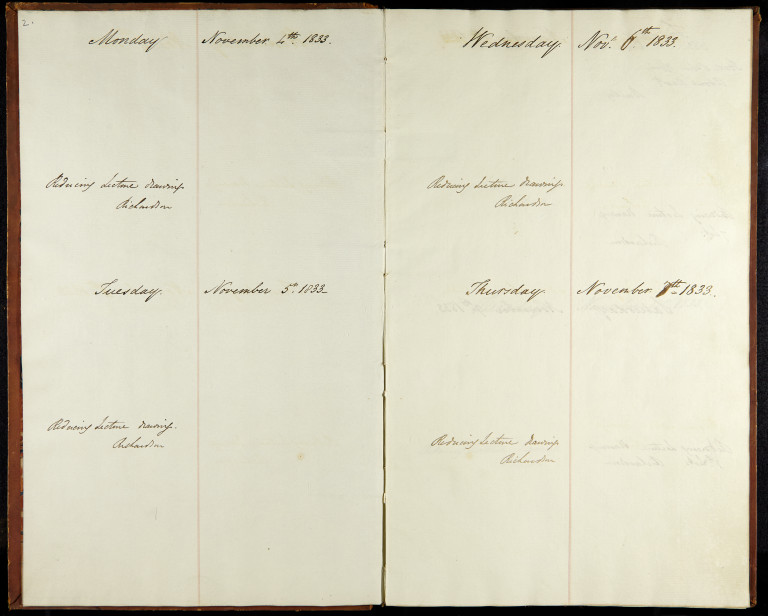 2.
Monday November 4th 1833.
Reducing Lecture drawings
Richardson
Tuesday November 5th 1833
Reducing Lecture drawings.
Richardson
Wednesday Novr. 6th 1833.
Reducing Lecture drawings
Richardson
Thursday November 7th 1833.
Reducing Lecture drawings
Richardson